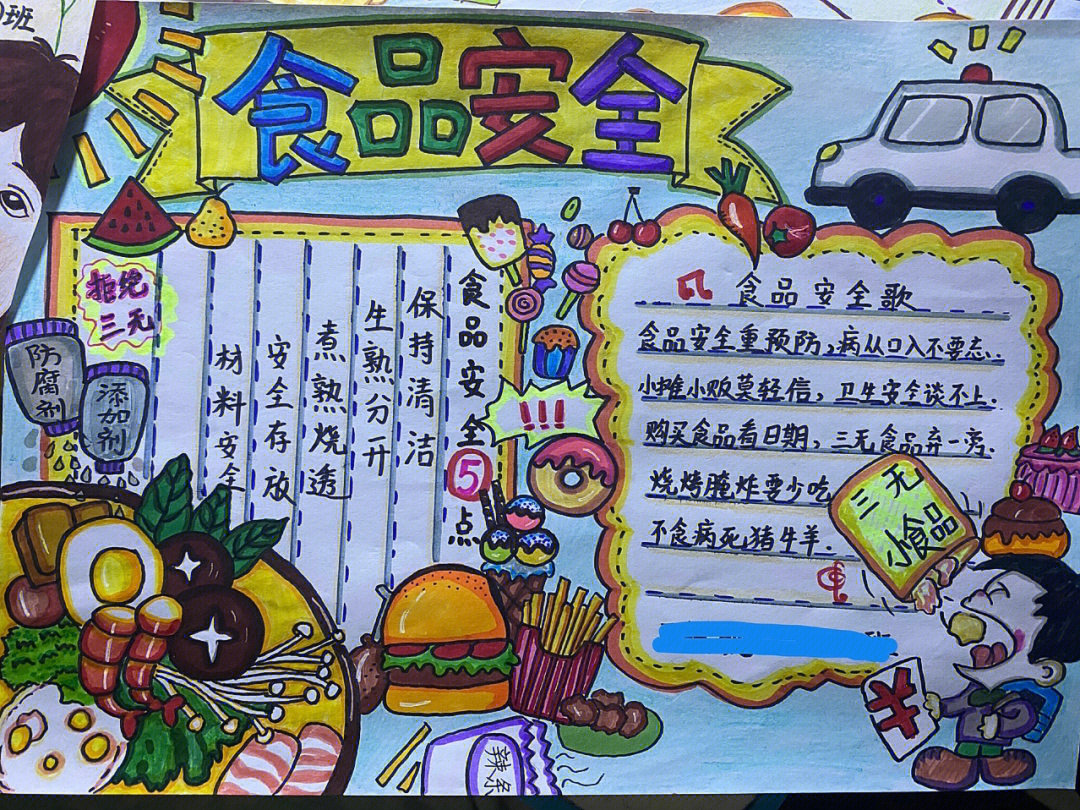 班
食品安全
食品安全5点
保持清洁
生熟分开
煮熟烧透
安全存放
材料安全
拒绝
三无
防腐剂
添加剂
!!!
食品安全歌
食品安全重预防，病从口入不要忘.
小摊小贩莫轻信，卫生安全谈不上.
购买食品看日期，三无食品弃一旁.
烧烤腌炸要少吃
不食病死猪牛羊.
三无
小食品
辣条